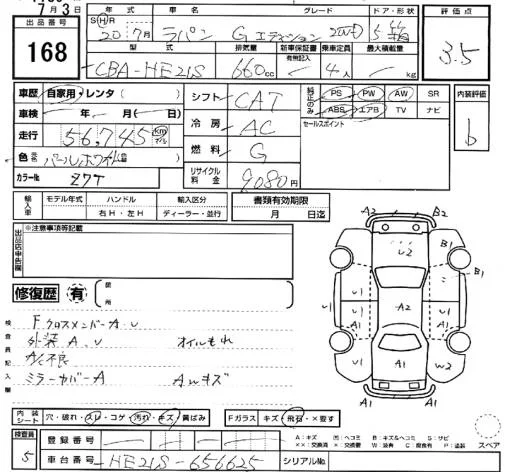 7月3日
出品番号 年式 車名 グレード ドア・形状 評価点
168
SH R 20年7月 ラパン Gエディション 2WD 5 3.5
型式 排気量 新車保証書 有無記入 乗車定員 最大積載量
CBA-HE21S 660cc 4人 kg
車歴 自家用・レンタ( ) シフト CAT 純正のみ PS PW AW SR 内装評価
ABS エアB TV ナビ
車検 年 月(日) 冷房 AC セールスポイント b
走行 56,745 km マイル 燃料 G
色 元色 パールホワイト
カラーNo. Z7T リサイクル料金 9,080円
輸入車 モデル年式 ハンドル 輸入区分 書類有効期限
右H・左H ディーラー・並行 月 日迄
出品店申告欄 ※注意事項等記載
修復歴 有 箇所
検査員記入欄
FクロスメンバーA、U
外装A、U オイルもれ
A/C不良
ミラーカバーA AWキズ
A2 B2
U2 B1
B1
U1 U1 U1
A2
A1 U1 A1
A1 W2
A1 A1
内装シート 穴・破れ・スレ・コゲ・汚れ・キズ・黄ばみ Fガラス キズ・飛石・×要す
検査員 5
登録番号
車台番号 HE21S-656625 シリアルNo.
A:キズ U:ヘコミ B:キズ&ヘコミ S:サビ
××:交換済 ×:交換要 W:波有 C:腐食有 P:塗装 スペア